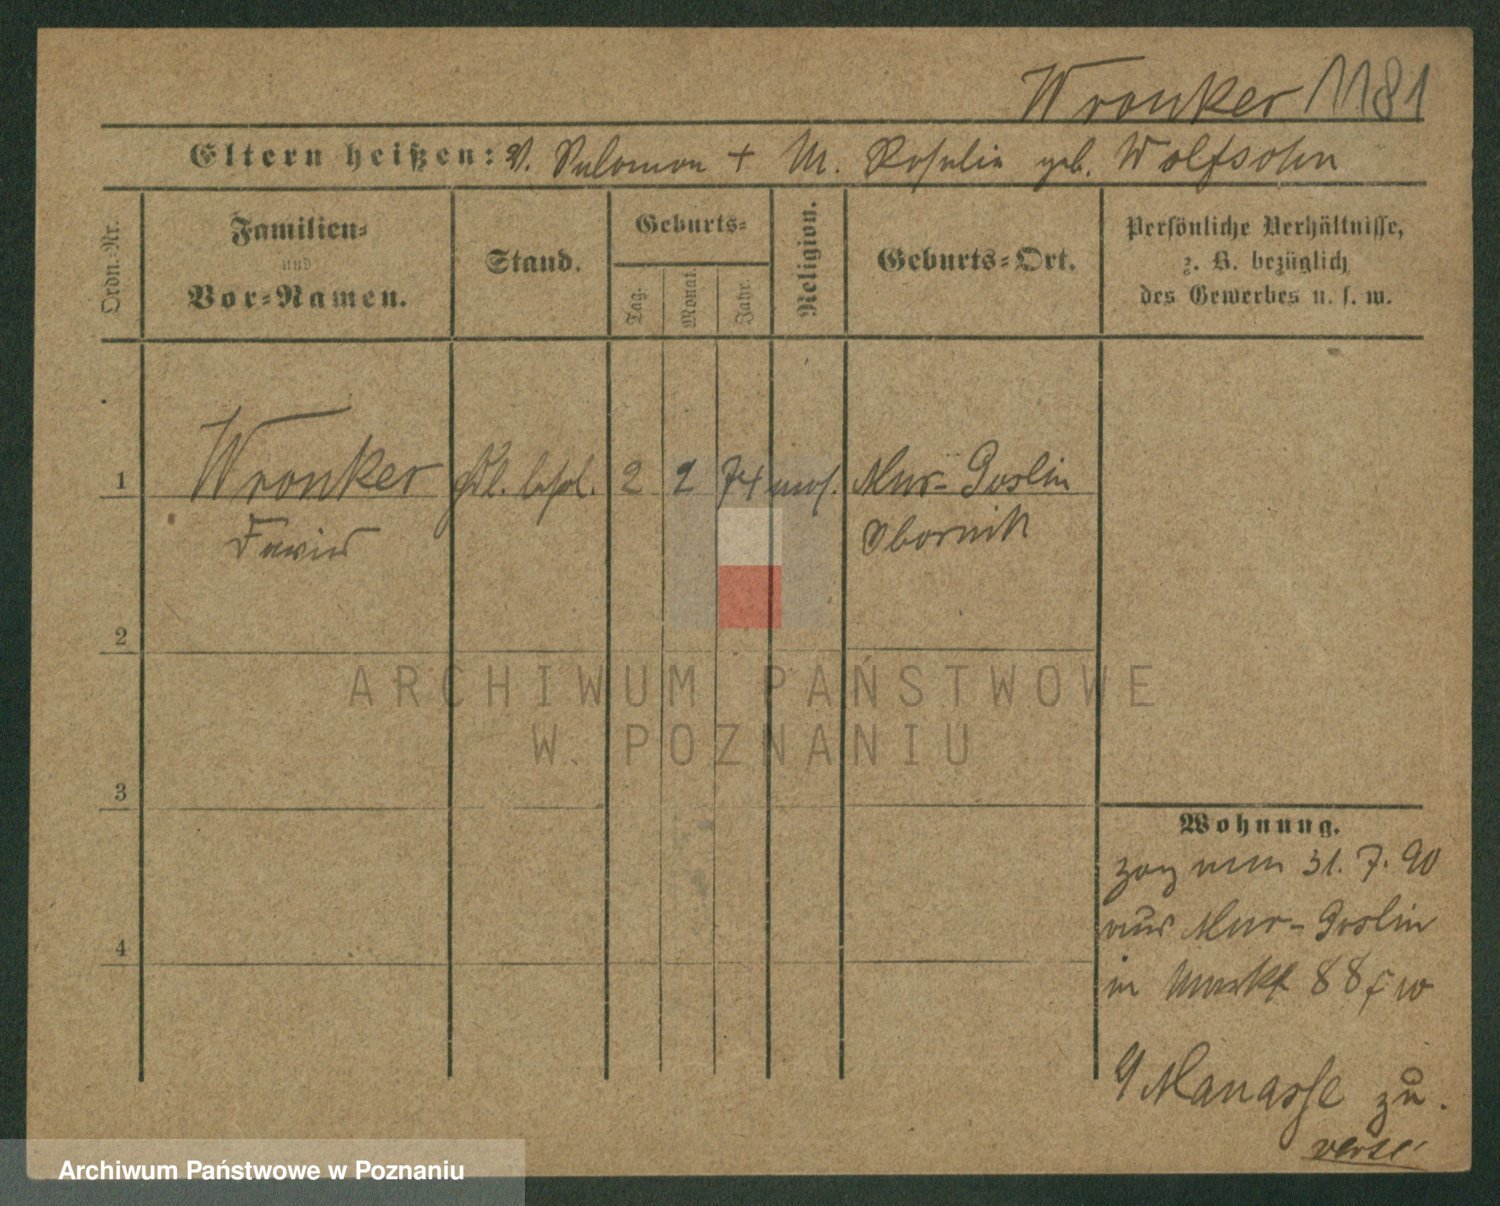 Wronker 1181
Eltern heißen: V. Salomon + M. Rosalie geb. Wolfsohn
Ordn.-Nr.
Familien-
und
Vor-Namen.
Stand.
Geburts-
Tag.
Monat.
Jahr.
Religion.
Geburts-Ort.
Persönliche Verhältnisse,
z. B. bezüglich
des Gewerbes u. s. w.
1 Wronker 2 2 74 mos. Mur-Goslin
David Obornik
2
3
4
Wohnung.
zog am 31. 7. 90
aus Mur-Goslin
in Markt 88
Manasse zu.
verse
ARCHIWUM PAŃSTWOWE
W POZNANIU
Archiwum Państwowe w Poznaniu